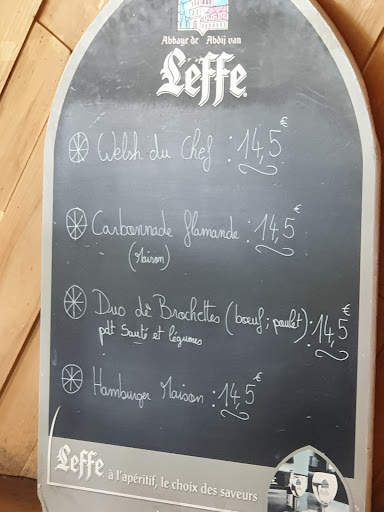 Abbaye de Abdij van
Leffe
Welsh du Chef : 14,5€
Carbonnade flamande : 14,5€
(Maison)
Duo de Brochettes (bœuf ; poulet) : 14,5€
pdt sauté et légumes
Hamburger Maison : 14,5€
Leffe à l'apéritif, le choix des saveurs